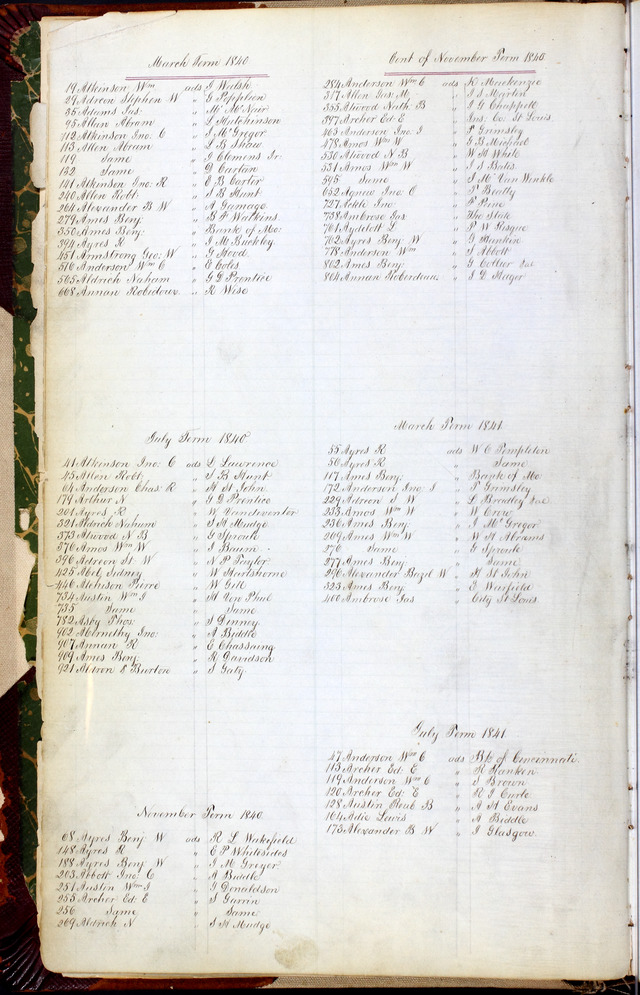 March Term 1840
19 Atkinson Wm ads J Walsh
29 Adreon Stephen W " G Popplien
35 Adams Jas. " Mc Nair
95 Allen Abram " L Hutchinson
112 Atkinson Jno. C " J McGregor
113 Allen Abram " L B Shaw
119 Same " J Clemens Jr.
132 Same " D Carlan
141 Atkinson Jno: R " E B Carter
240 Allen Robt " S B Hunt
264 Alexander B W " A Gamage
279 Ames Benj " B F Watkins
350 Ames Benj: " Bank of Mo:
394 Ayres R " J M Buckley
451 Armstrong Geo: W " G Hood
516 Anderson Wm C " E Coles
565 Aldrich Nahum " G D Prentice
608 Annan Robideoux " R Wise
July Term 1840
41 Atkinson Jno: C ads L Lawrence
45 Allen Robt " S B Hunt
64 Anderson Chas: R " H St John
179 Arthur N " G D Prentice
201 Ayres R " W Vandeventer
321 Aldrich Nahum " S H Mudge
373 Atwood N B " G Sproule
376 Amos Wm W " J Baum
396 Adreon St W " N P Taylor
425 Abel Sidney " H Hartshorne
446 Atchison Pierre " W Gill
734 Austin Wm J " H Von Phul
735 Same " Same
782 Asby Thos: " S Dinney
902 Abernethy Jno: " A Biddle
907 Annan R " E Chassaing
909 Ames Benj " R Davidson
921 Adreon & Burton " S Gaty
November Term 1840
68 Ayres Benj W ads R L Wakefield
148 Ayres R " E P Whitesides
188 Ayres Benj W " J McGregor
203 Abbott Jno: C " A Biddle
251 Austin Wm J " J Donaldson
255 Archer Ed: E " S Garrin
256 Same " Same
269 Aldrich N " S H Mudge
Cont of November Term 1840
284 Anderson Wm C ads K Mackenzie
317 Allen Geo: M " J J Martin
355 Atwood Nath: B " J G Chappell
397 Archer Ed: E " Ins. Co. St Louis
463 Anderson Jno. J " P Grimsley
478 Amos Wm W " G B Michael
530 Atwood N B " W H White
531 Amos Wm W " J S Bates
595 Same " J M Van Winkle
652 Agnew Jno. C " J Beatty
727 Adde Jno " P Pine
738 Ambrose Jas " The State
761 Aydelott L " P W Risque
762 Ayres Benj. W " G Rankin
778 Anderson Wm " S Abbott
802 Ames Benj. " G Collier &al
804 Annan Roberdeau " S D Hager
March Term 1841
55 Ayres R ads W C Pempleton
56 Ayres R " Same
117 Ames Benj: " Bank of Mo
172 Anderson Jno: J " T Grimsley
229 Adreon S W " L Bradley &al
233 Amos Wm W " W Crow
236 Ames Benj: " J McGregor
269 Amos Wm W " W H Abrams
276 Same " G Sproule
277 Ames Benj: " Same
296 Alexander Bazil W " H St John
323 Ames Benj: " E Warfield
400 Ambrose Jas " City St Louis
July Term 1841
47 Anderson Wm C ads Bk of Cincinnati
113 Archer Ed: E " R Ranken
119 Anderson Wm C " J Brown
120 Archer Ed: E " R J Curle
128 Austin Reub B " A H Evans
164 Adie Lewis " A Biddle
173 Alexander B W " J Glasgow